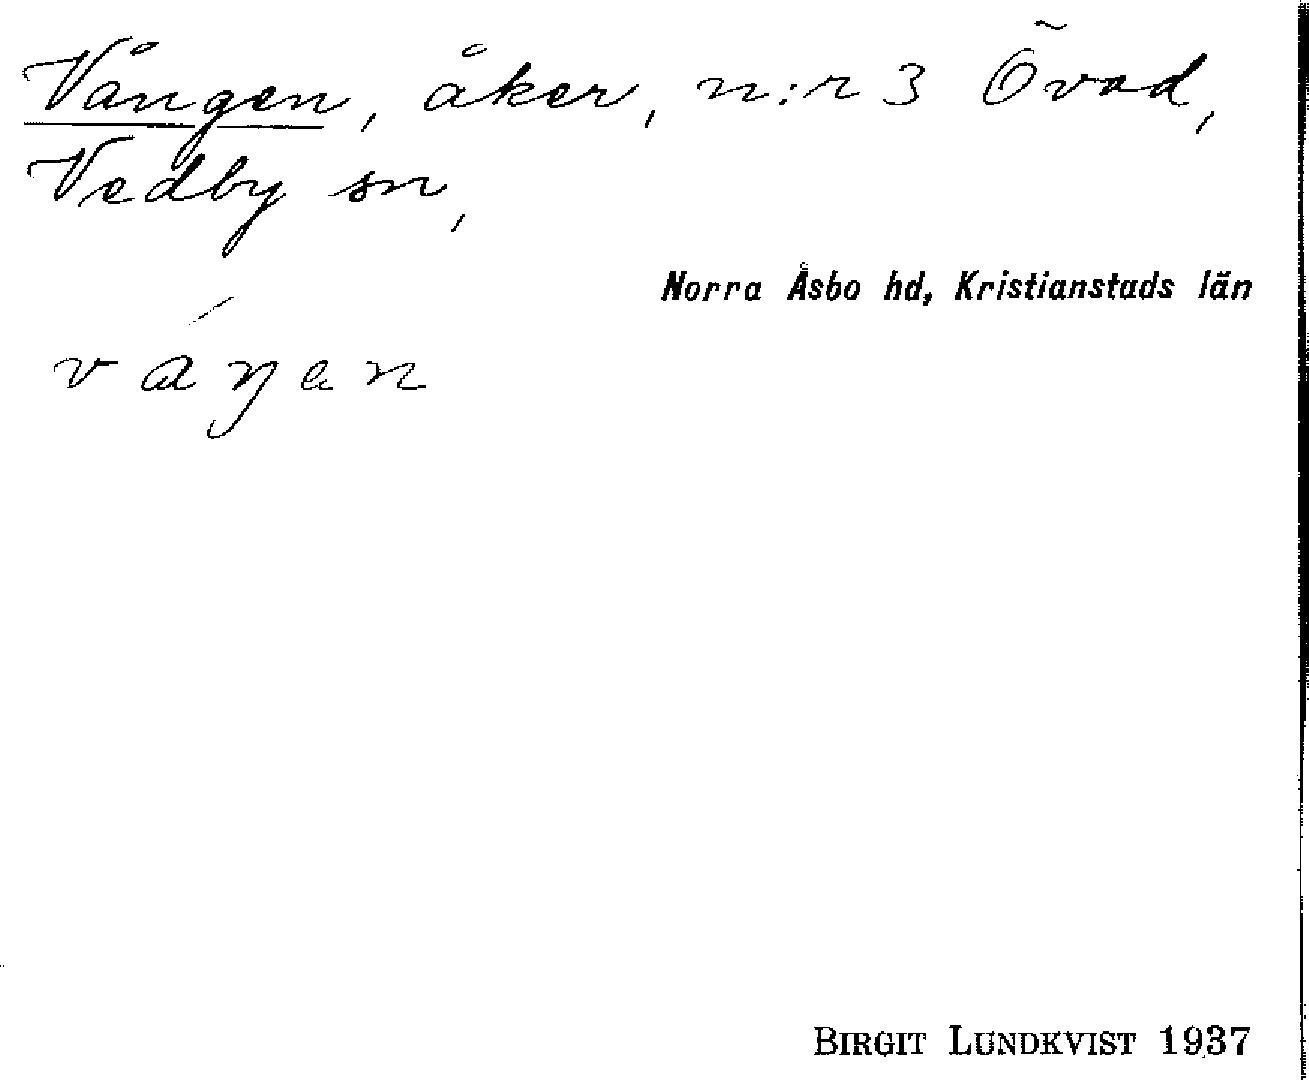 Vången, åker, n:r 3 Övad,
Vedby sn,
Norra Åsbo hd, Kristianstads län
váŋen
BIRGIT LUNDKVIST 1937